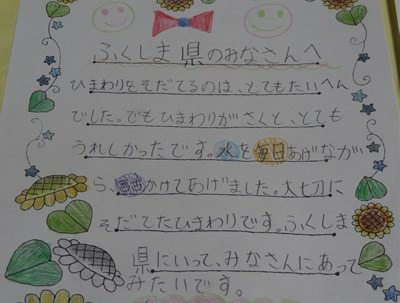 ふくしま県のみなさんへ
ひまわりをそだてるのは、とてもたいへん
でした。でもひまわりがさくと、とても
うれしかったです。水を毎日あげなが
ら、話かけてあげました。大切に
そだてたひまわりです。ふくしま
県にいって、みなさんにあって
みたいです。